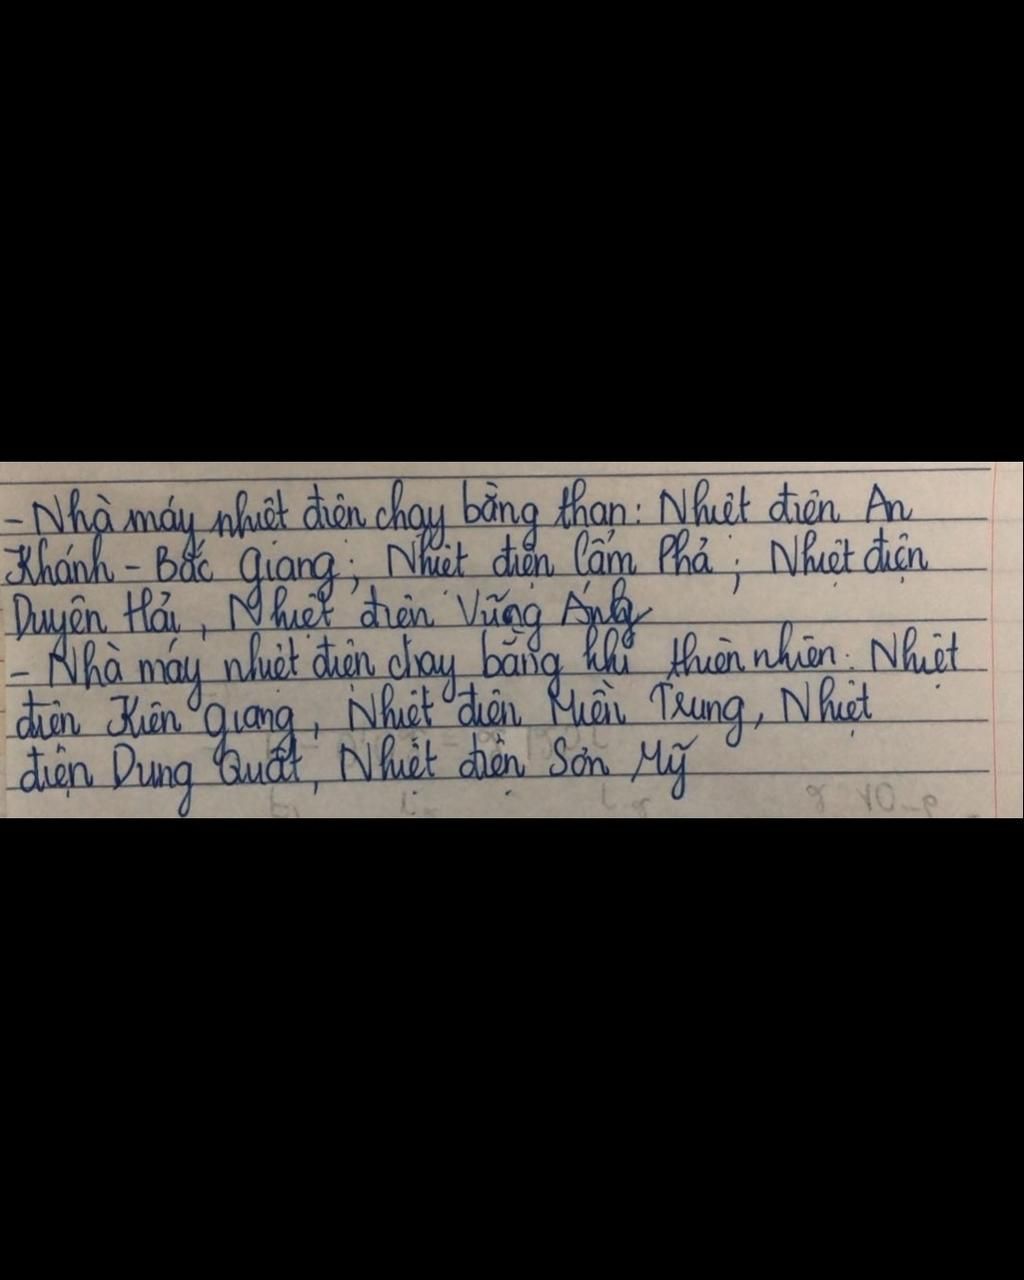 - Nhà máy nhiệt điện chạy bằng than: Nhiệt điện An
Khánh - Bắc Giang; Nhiệt điện Cẩm Phả; Nhiệt điện
Duyên Hải, Nhiệt điện Vũng Áng
- Nhà máy nhiệt điện chạy bằng khí thiên nhiên: Nhiệt
điện Kiên Giang, Nhiệt điện Miền Trung, Nhiệt
điện Dung Quất, Nhiệt điện Sơn Mỹ